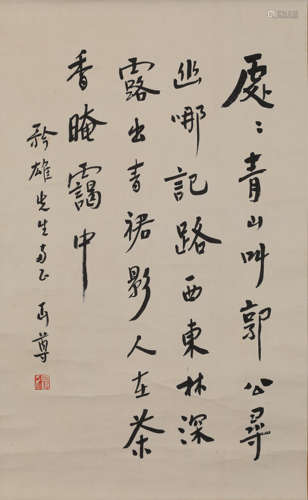 處〻青山叫郭公尋
幽哪記路西東林深
露出青裙影人在茶
香晻靄中
雄先生正 丏尊